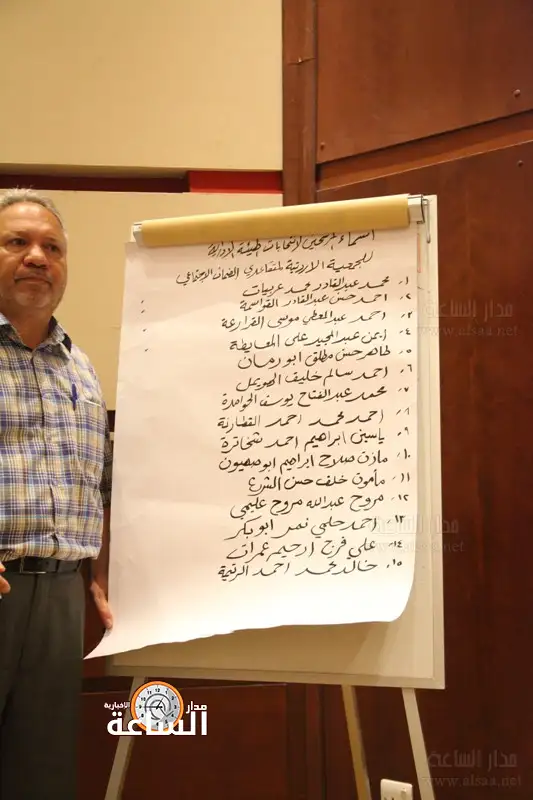 اسماء المرشحين لانتخابات الهيئة الادارية
للجمعية الاردنية لمتقاعدي الضمان الاجتماعي
١. محمد عبدالقادر محمد عربيات
٢. احمد حسن عبدالقادر القواسمة
٣. احمد عبدالمعطي موسى القرارعة
٤. أيمن عبدالمجيد علي المعايطة
٥. طاهر حسن مطلق ابورمان
٦. احمد سالم خليف الهويمل
٧. محمد عبدالفتاح يوسف الخوامدة
٨. احمد محمد احمد القطارنة
٩. ياسين ابراهيم احمد شخاترة
١٠. مازن صلاح ابراهيم ابوصهيون
١١. مأمون خلف حسن الشرع
١٢. مروح عبدالله مروح عليمي
١٣. احمد حلمي نمر ابوبكر
١٤. علي فرج ارحيم عمرات
١٥. خالد محمد احمد الرتيمة
مدار الساعة
www.alsaa.net
مدار الساعة
مدار الاخبارية
الساعة
مدار الساعة
www.alsaa.net